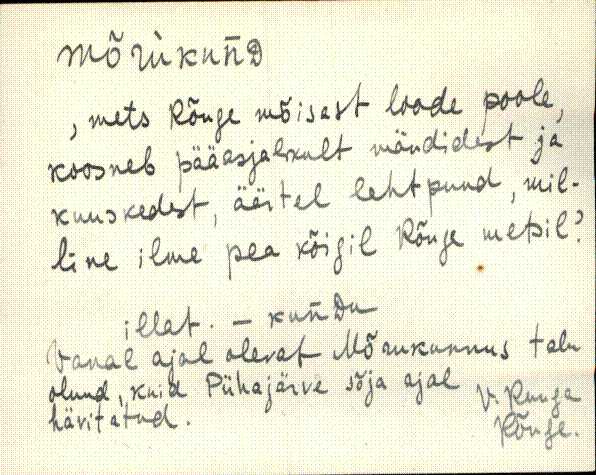 Mõrukuňd
, mets Rõuge mõisast loode poole,
koosneb pääasjalikult mändidest ja
kuuskedest, ääitel lehtpuud, mil-
line ilme pea kõigil Rõuge metsil?
illat. – kuňdu
Vanal ajal olevat Mõrukunnus talu
olnud, kuid Pühajärve sõja ajal
hävitatud.
V. Ruuga
Rõuge.